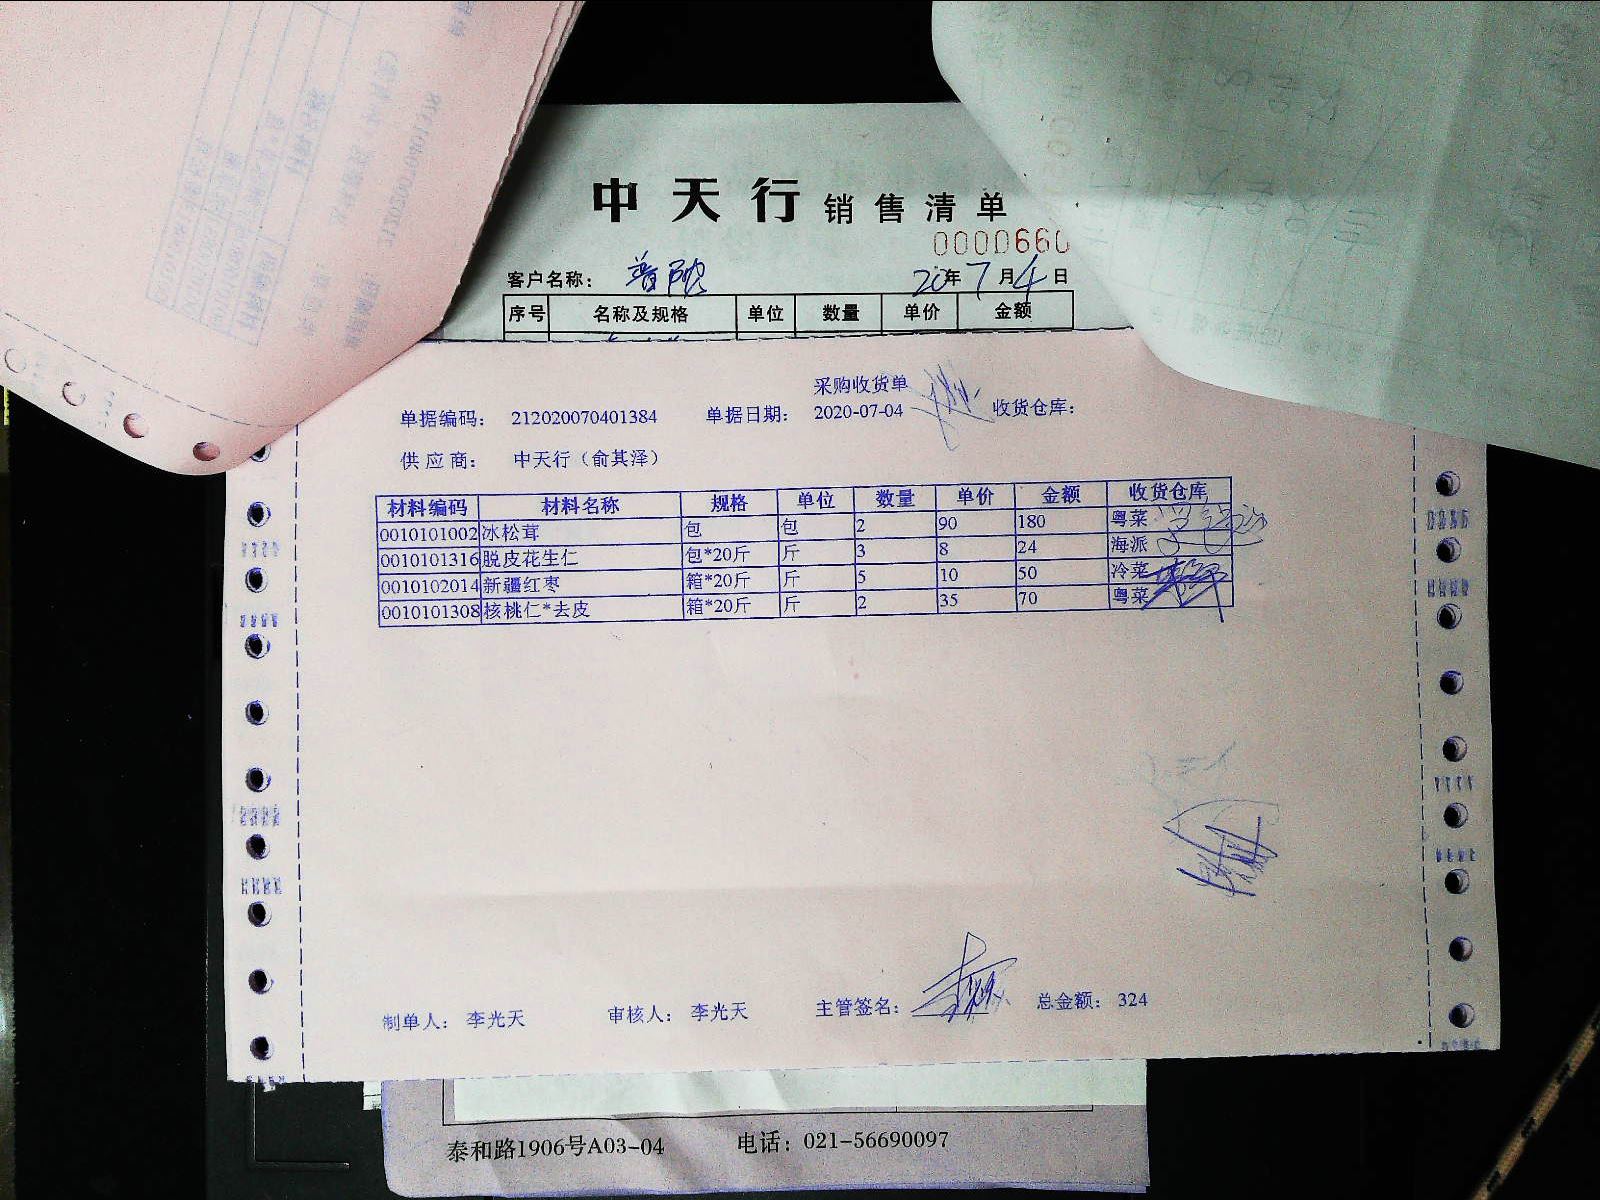 中天行销售清单
0000660
客户名称： 20年7月4日
序号 名称及规格 单位 数量 单价 金额
采购收货单
单据编码： 212020070401384 单据日期： 2020-07-04 收货仓库：
供应商： 中天行（俞其泽）
材料编码 材料名称 规格 单位 数量 单价 金额 收货仓库
0010101002 冰松茸 包 包 2 90 180 粤菜
0010101316 脱皮花生仁 包*20斤 斤 3 8 24 海派
0010102014 新疆红枣 箱*20斤 斤 5 10 50 冷菜
0010101308 核桃仁*去皮 箱*20斤 斤 2 35 70 粤菜
制单人： 李光天 审核人： 李光天 主管签名： 总金额： 324
泰和路1906号A03-04 电话：021-56690097